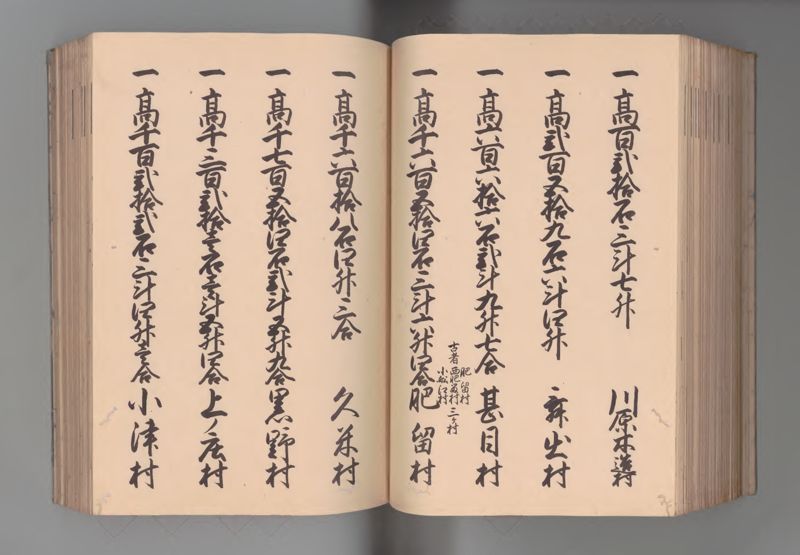 一高百弐拾石三斗七升 川原木造村
一高弐百五拾九石六斗四升 舞出村
一高六百六拾六石弐斗九升七合 甚目村
一高千六百五拾四石三斗六升四合 肥留村
古者 肥留村
西肥留村
小舩江村
三ケ村
一高千六百拾八石四升三合 久米村
一高千七百五拾四石弐斗五升九合 黒野村
一高千三百弐拾壱石壱斗五升四合 上ノ庄村
一高千百弐拾弐石三斗四升壱合 小津村